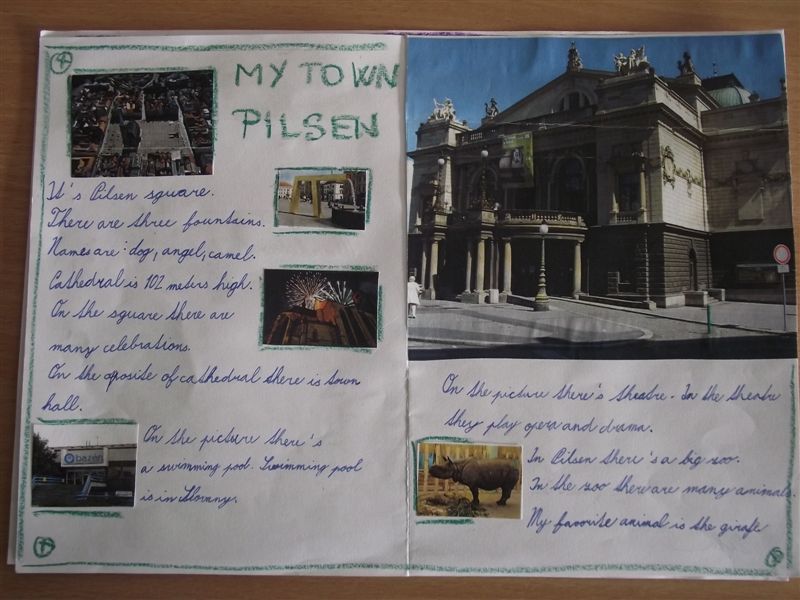 MY TOWN
PILSEN
It's Pilsen square.
There are three fountains.
Names are: dog, angel, camel.
Cathedral is 102 meters high.
On the square there are
many celebrations.
On the oposite of cathedral there is town
hall.
bazén
On the picture there's
a swimming pool. Swimming pool
is in Slovany.
On the picture there's theatre. In the theatre
they play opera and drama.
In Pilsen there's a big zoo.
In the zoo there are many animals.
My favorite animal is the girafe